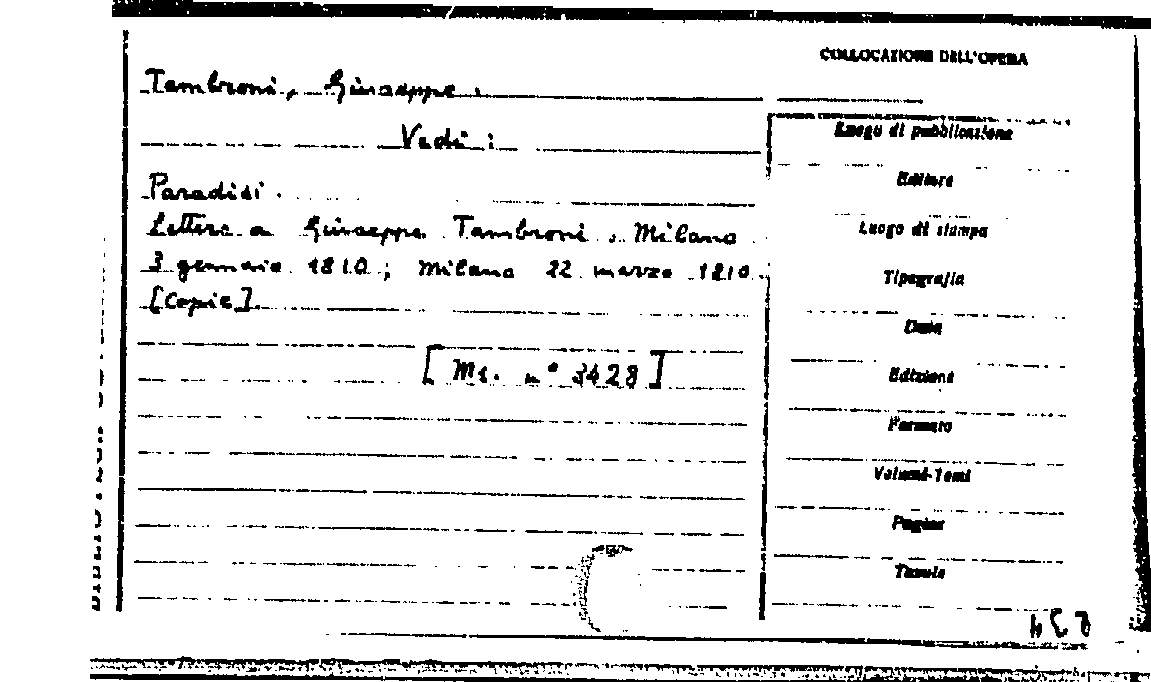 COLLOCAZIONE DELL'OPERA
Tambroni, Giuseppe.
Vedi:
Paradisi.
Lettere a Giuseppe Tambroni, Milano
3 gennaio 1810; Milano 22 marzo 1810.
[Copie].
[Ms. n° 3428]
Luogo di pubblicazione
Editore
Luogo di stampa
Tipografia
Data
Edizione
Formato
Volumi-Tomi
Pagine
Tavole